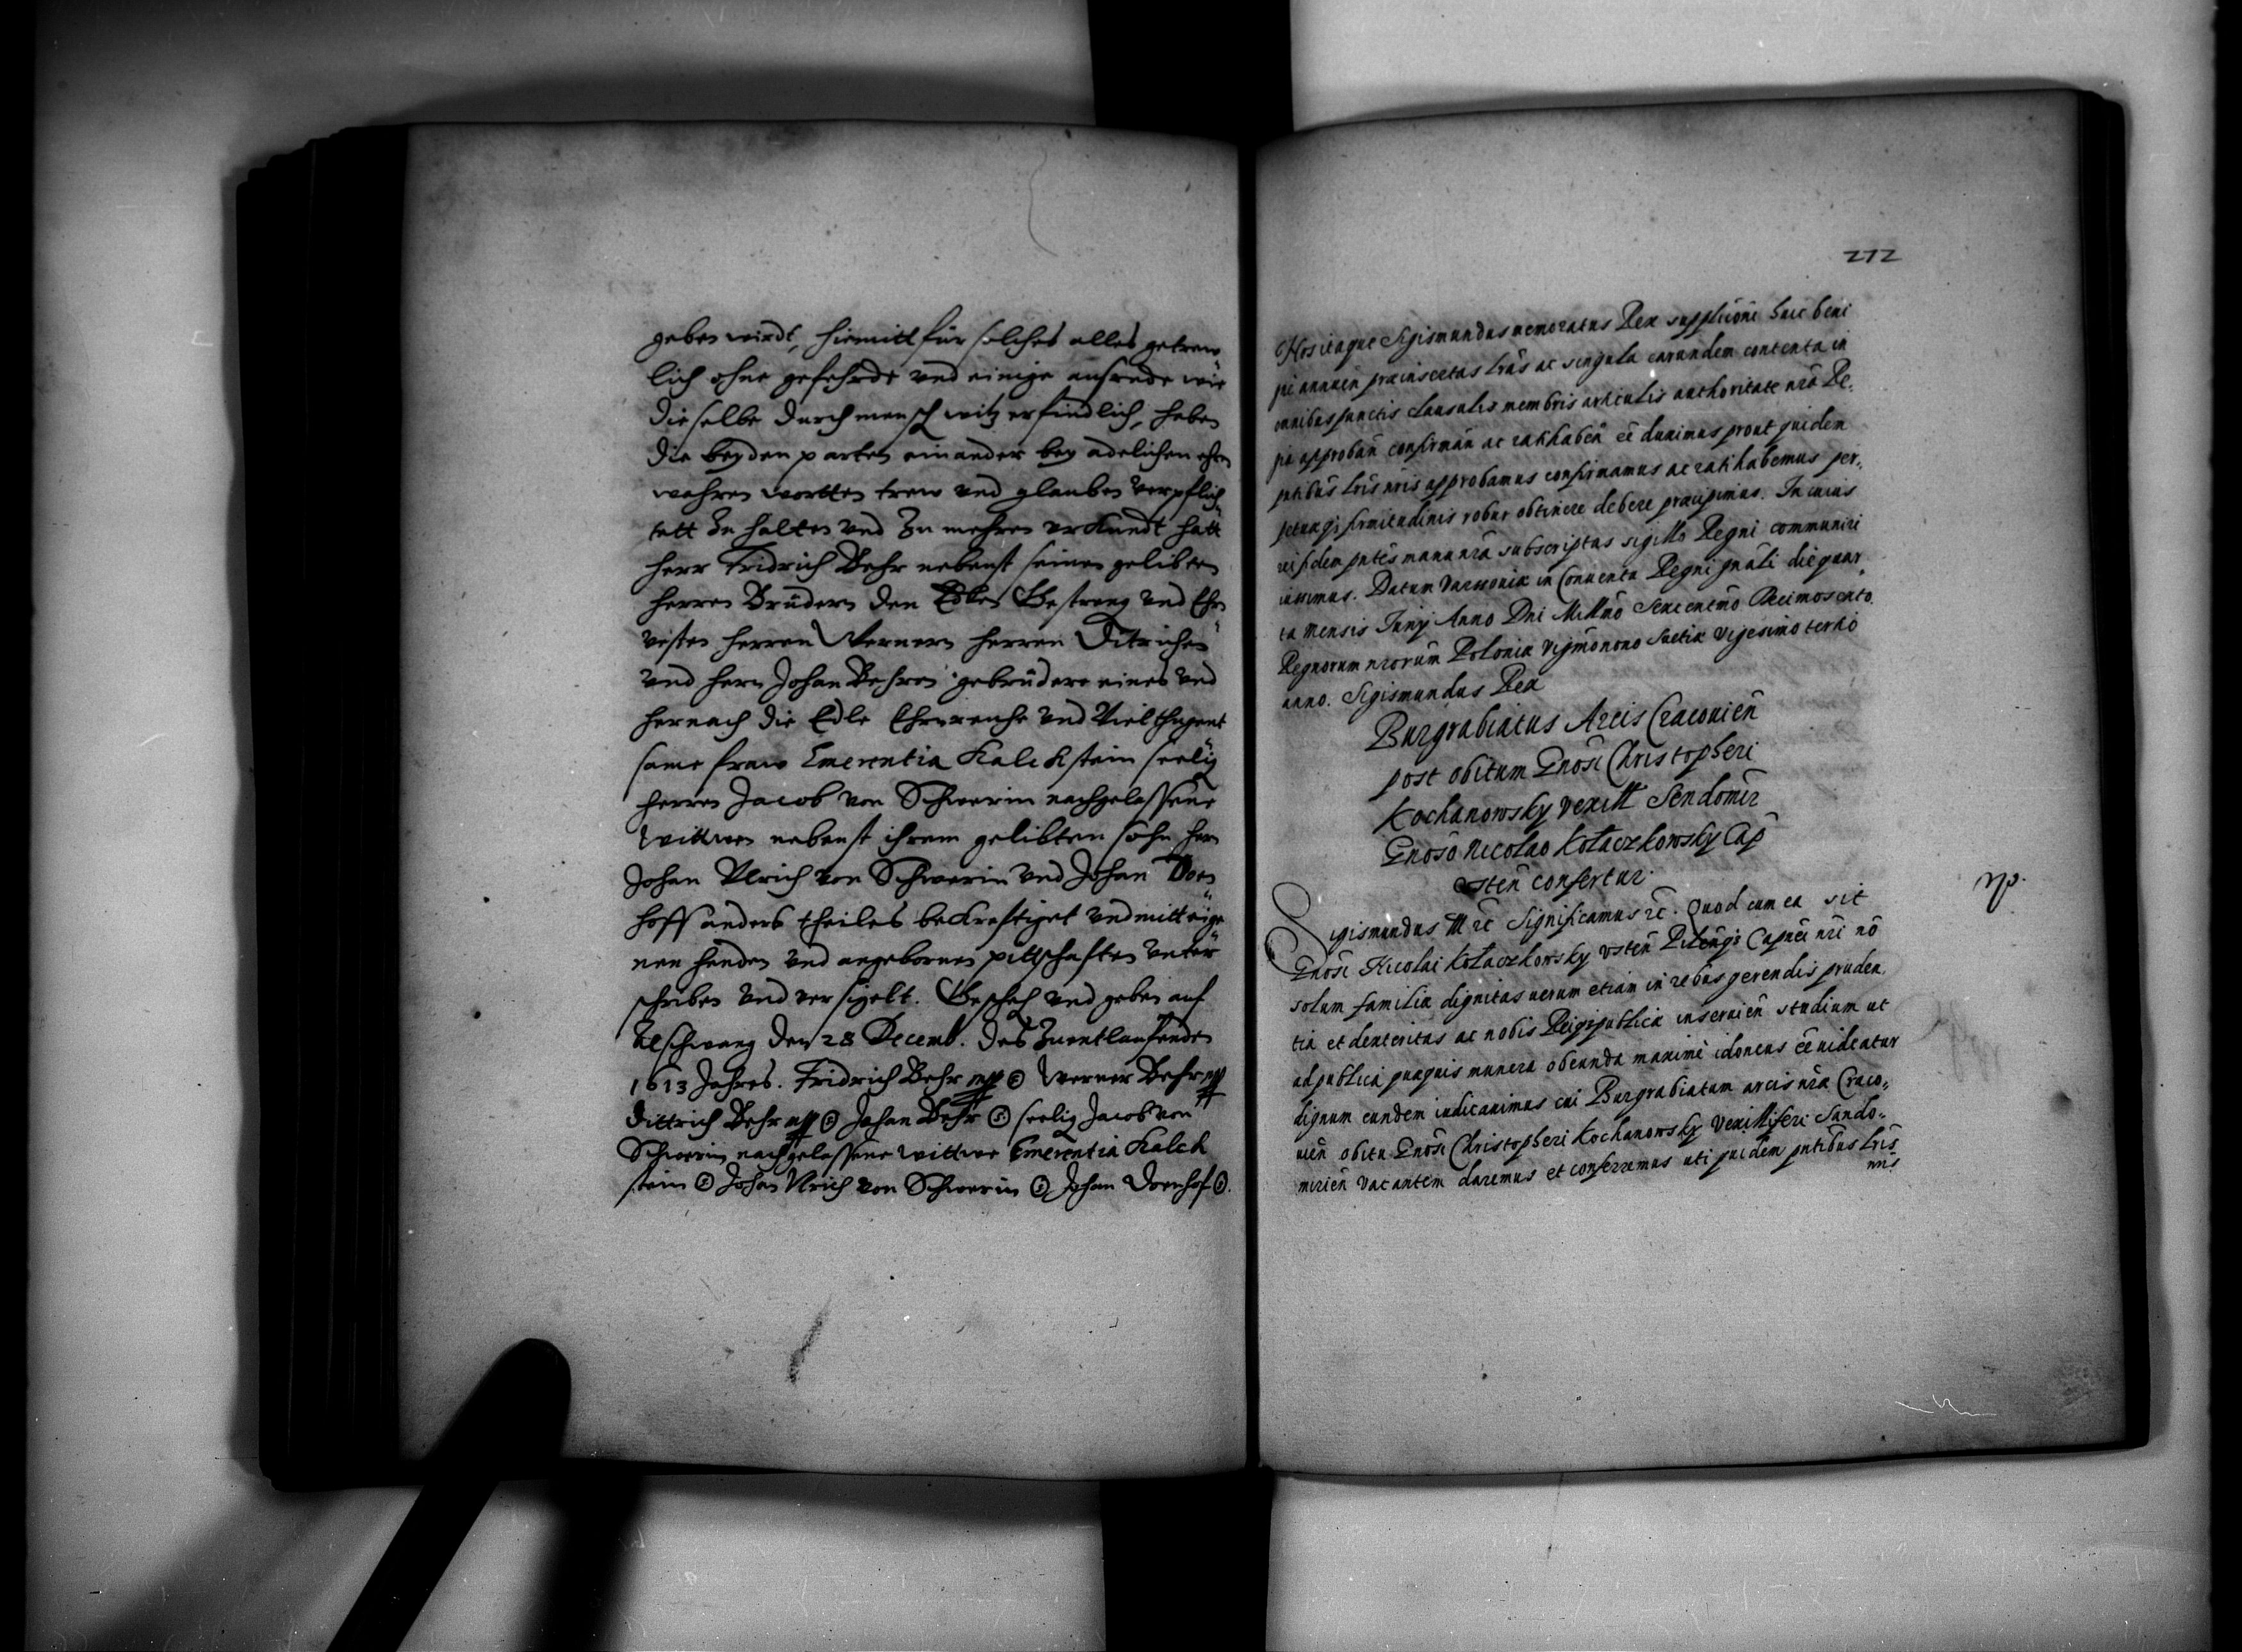 geben wirdt, hiemitt für solches alles getrew
lich ohne gefehrde vnd einige ausrede wie
dieselbe durch mensch witz erfindlich, haben
die beyden parten einander bey adelichen ehren
wahren wortten trew vnd glauben verpflich
tett zu halten vnd zu mehren vrkundt hatt
herr Fridrich Behr nebenst seinen gelibten
herren Brüdern den Edlen Gestreng vnd Ehrn
vesten herren Wernern herren Ditrichen
vnd hern Johan Behren gebrüdere eines vnd
hernach die Edle Ehrnreiche vnd Vielthugent
same fraw Emerentia Kalckstein seelig
herren Jacob von Schwerin nachgelassene
Wittwen nebenst ihrem gelibten sohn hern
Johan Vlrich von Schwerin vnd Johan Dorn
hoff anders theiles bekreftiget vnd mitt eige
nen henden vnd angebornen pittschaften vnter
schriben vnd versigelt. Geschech vnd geben auf
Alschwang den 28 Decemb. des zuentlaufenden
1613 Jahres. Fridrich Behr mp Werner Behr mp
Dittrich Behr mp Johan Behr seelig Jacob von
Schwerin nachgelassene wittwe Emerentia Kalck
stein Johan Vlrich von Schwerin Johan Dornhof
272
Nos itaque Sigismundus memoratus Rex supplicōni huic beni
gne annuen praeinsertas lrās ac singula earundem contenta in
omnibus punctis clausulis membris articulis authoritate nrā Re,
gia approban̄ confirman̄ ac ratihaben̄ eē duximus prout quidem
pntibus lris nris approbamus confirmamus ac ratihabemus per,
petuaeqȝ firmitudinis robur obtinere debere praecipimus. In cuius
rei fidem pntēs manu nrā subscriptas sigillo Regni communiri
iussimus. Datum Varsouiae in Conuentu Regni gnāli die quar
ta Mensis Iunij Anno Dni Millmō Sexcentmō Decimosexto.
Regnorum nrorum Poloniae Vigmōnono Suetiae vigesimo tertio
anno. Sigismundus Rex
Burgrabiatus Arcis Cracouien̄
post obitum Gnosi Christopheri
Kochanowsky Vexill Sendomir
Gnoso Nicolao Kołaczkowsky Cap
vsten confertur.
np.
Sigismundus III rc̄ Significamus rc̄. Quod cum ea sit
Gnosi Nicolai Kołaczkowsky vsten Pilengs Capnēi nri nō
solum familiae dignitas uerum etiam in rebus gerendis pruden,
tia et dexteritas ac nobis Reiqȝpublicae inseruien̄ studium ut
ad publica quaequis munera obeunda maximè idoneus eē uideatur
dignum eundem iudicauimus cui Burgrabiatum arcis nrae Craco,
uien̄ obitu Gnosi Christopheri Kochanowsky Vexilliferi Sando,
mirien̄ vacantem daremus et conferremus uti quidem pntibus lris
nris